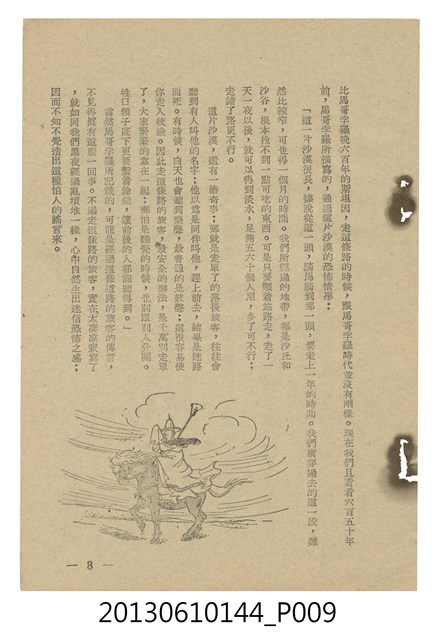 比馬哥孛羅晚六百年的斯坦因，走這條路的時候，跟馬哥孛羅時代並沒有兩樣。現在我們且看看六百五十年
前，馬哥孛羅所描寫的，通過這片沙漠的恐怖情形：
「這一片沙漠很長，據說從這一頭，騎馬騎到那一頭，要走上一年的時間。我們橫穿過去的這一段，雖
然比較窄，可也得一個月的時間。我們所經過的地帶，都是沙丘和
沙谷，根本找不到一點可吃的東西。可是只要順着站路走，走了一
天一夜以後，就可以得到淡水，足夠五六十個人用，多了可不行；
走錯了路更不行。
這片沙漠，還有一樁奇事：那就是走單了的落後旅客，往往會
聽到有人叫他的名字；他以爲是同伴叫他，趕上前去，結果是迷路
而死。有時候，白天也會聽到怪聲，最普通的是鼓聲；這很容易使
你走入歧途。因此走這條路的旅客，最安全的辦法，是千萬別走單
了，大家緊緊的靠在一起；那怕是睡覺的時候，也別跟別人分開。
牲口領子底下更要繫着鈴鐺，讓前後的人都能聽得到。」
當然馬哥孛羅所記載的，可能是經過這條路的旅客的傳言，
不見得眞有這麽一回事。不過走這條路的旅客，實在太淒涼寂寞了
，就如同我們黑夜經過亂墳地一樣，心中自然生出迷信恐怖之感；
因而不知不覺造出這種怕人的謠言來。
— 8 —
20130610144_P009